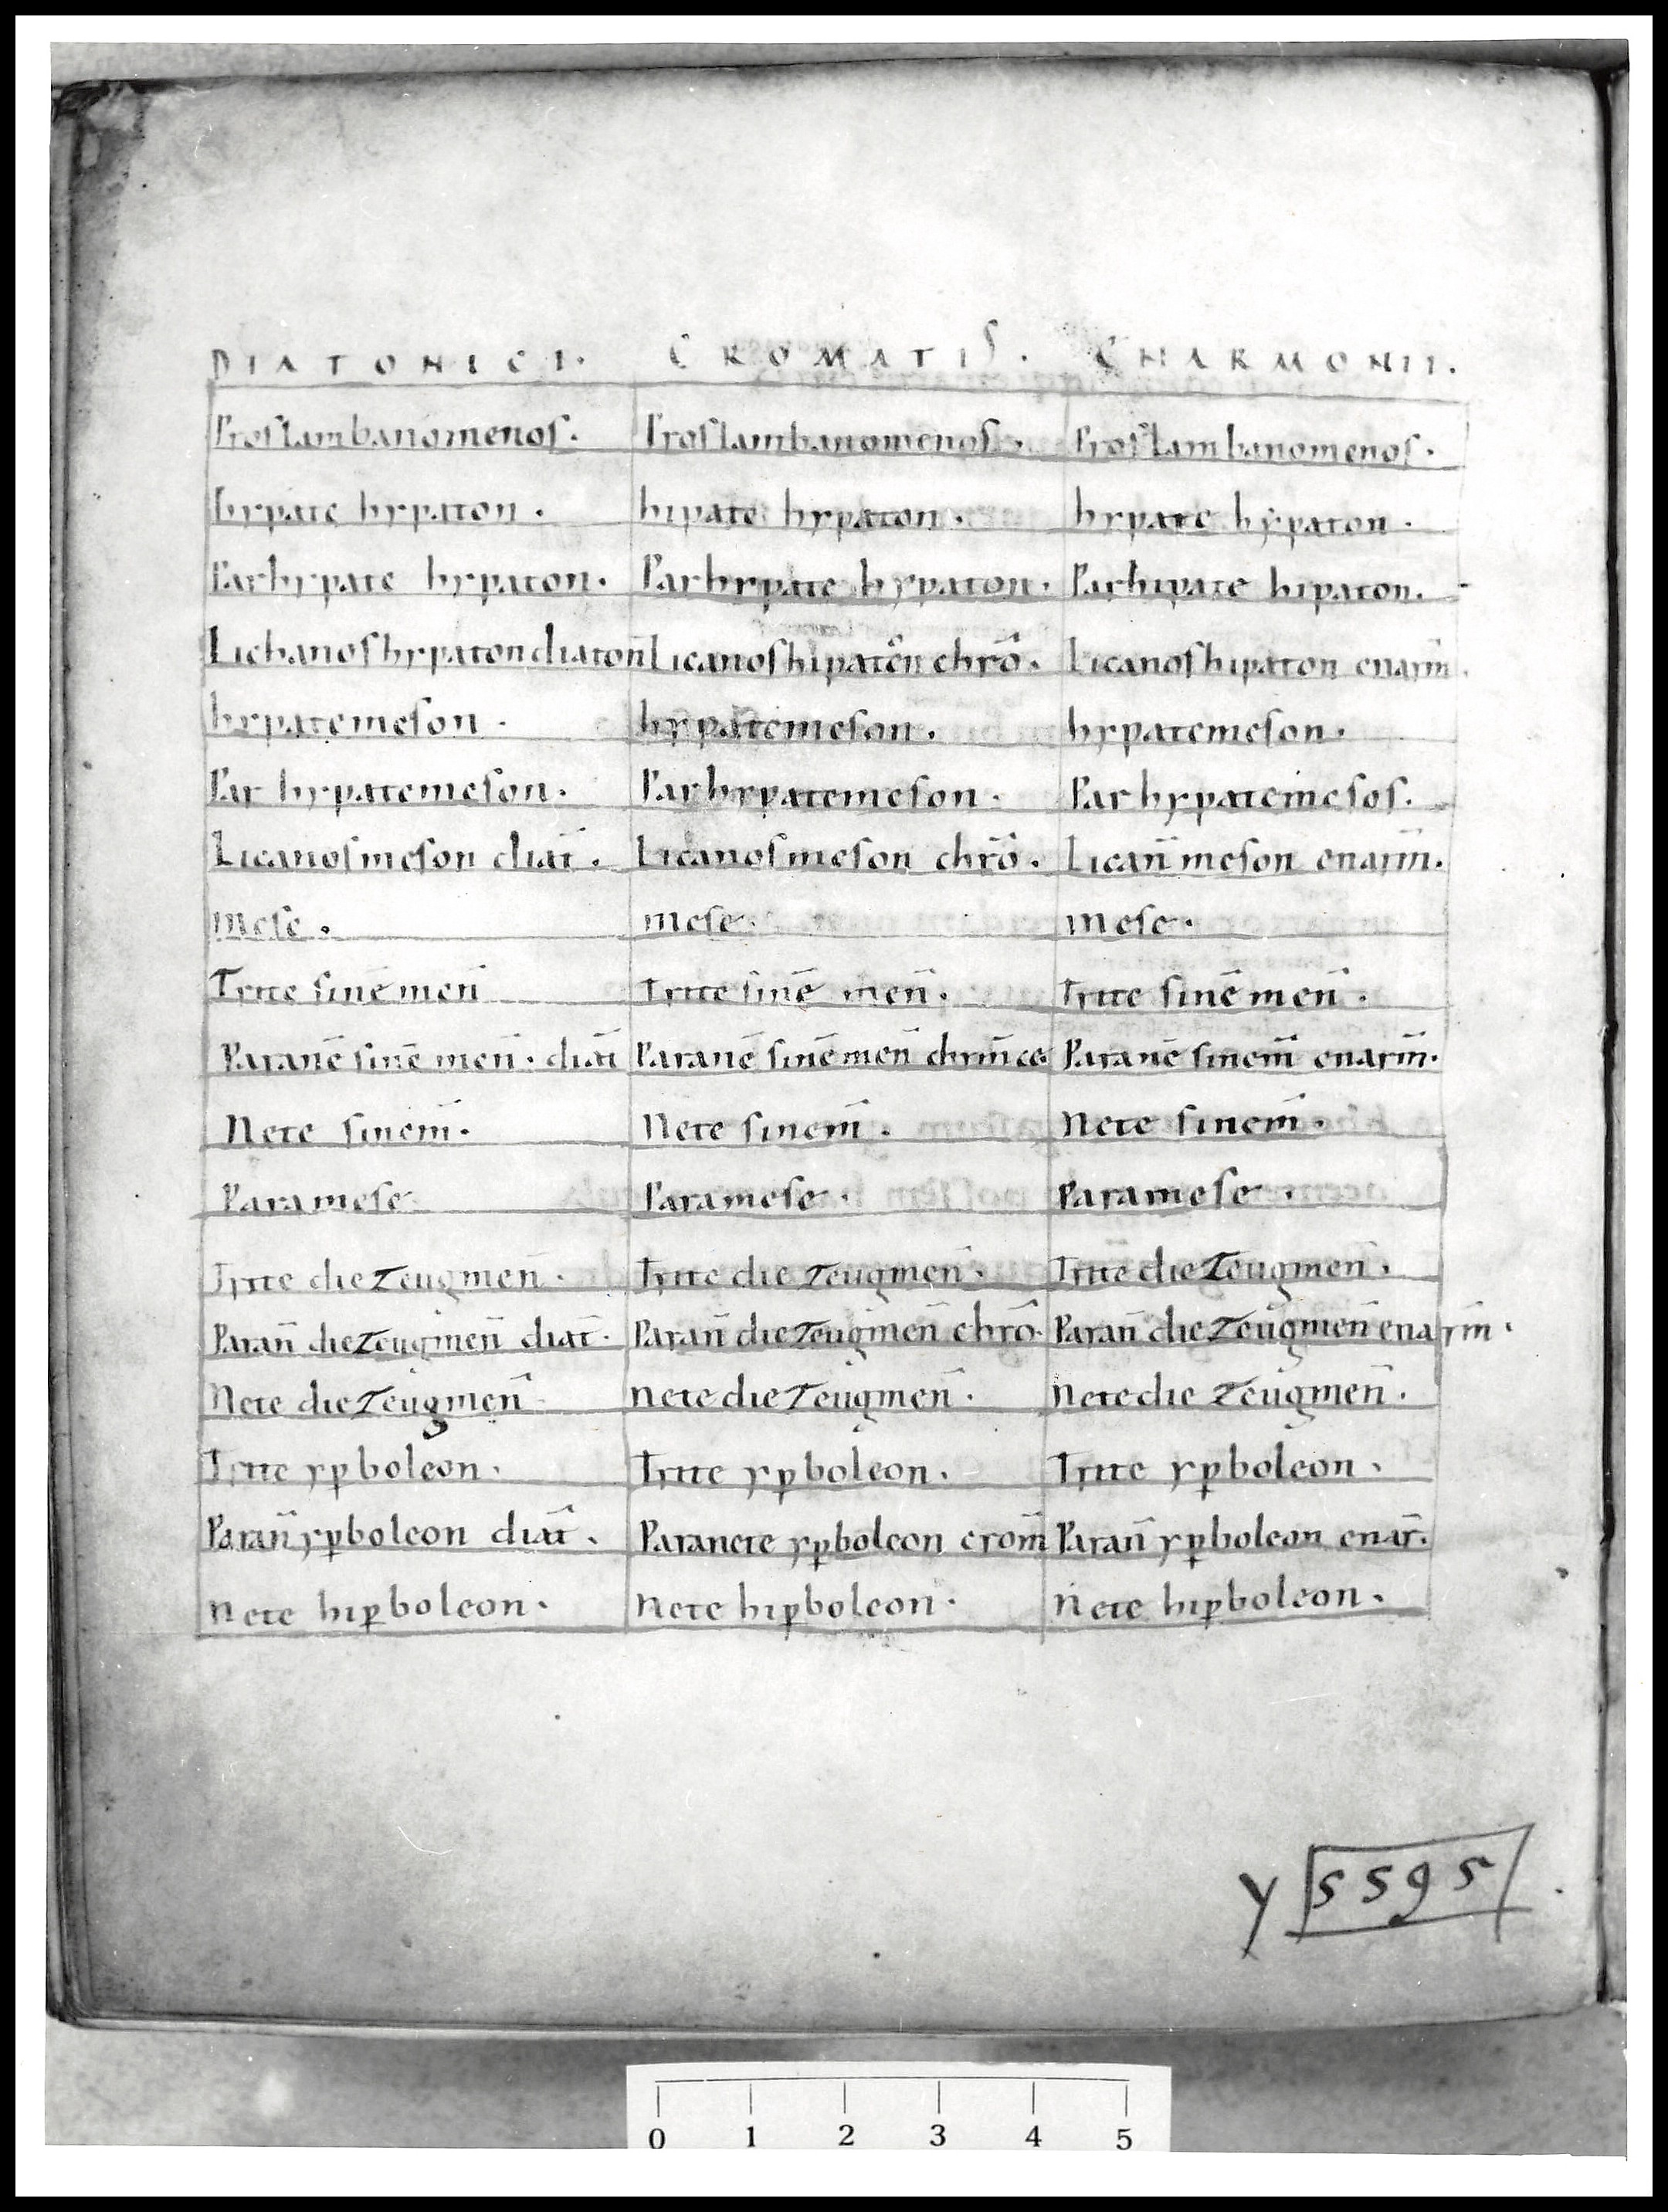 DIATONICI. CROMATIS. ENARMONII.
Proslambanomenos. Proslambanomenos. Proslambanomenos.
hypate hypaton. hipate hypaton. hypate hypaton.
Parhypate hypaton. Parhypate hypaton. Parhipate hipaton.
Lichanos hypaton diaton̄ Licanos hipaton chrō. Licanos hipaton enarm̄.
hypatemeson. hypatemeson. hypatemeson.
Parhypatemeson. Parhypatemeson. Parhypatemesos.
Licanosmeson diat̄. Licanosmeson chrō. Lican̄ meson enarm̄.
mese. mese. mese.
Trite sinēmen̄ Trite sinēmen̄. Trite sinēmen̄.
Paranē sinēmen̄. diat̄ Paranē sinēmen̄ Paranē sinem̄ enarm̄.
Nete sinem̄. Nete sinem̄. Nete sinem̄.
Paramese Paramese. Paramese.
Trite diezeugmen̄. Trite diezeugmen̄. Trite diezeugmen̄.
Paran̄ diezeugmen̄ diat̄. Paran̄ diezeugmen̄ chrō. Paran̄ diezeugmen̄ enarm̄.
Nete diezeugmen̄ Nete diezeugmen̄. Nete diezeugmen̄.
Trite yꝑboleon. Trite yꝑboleon. Trite yꝑboleon.
Paran̄ yꝑboleon diat̄. Paranete yꝑboleon crom̄ Paran̄ yꝑboleon enar̄.
Nete hiꝑboleon. Nete hiꝑboleon. Nete hiꝑboleon.
y 5595
0 1 2 3 4 5